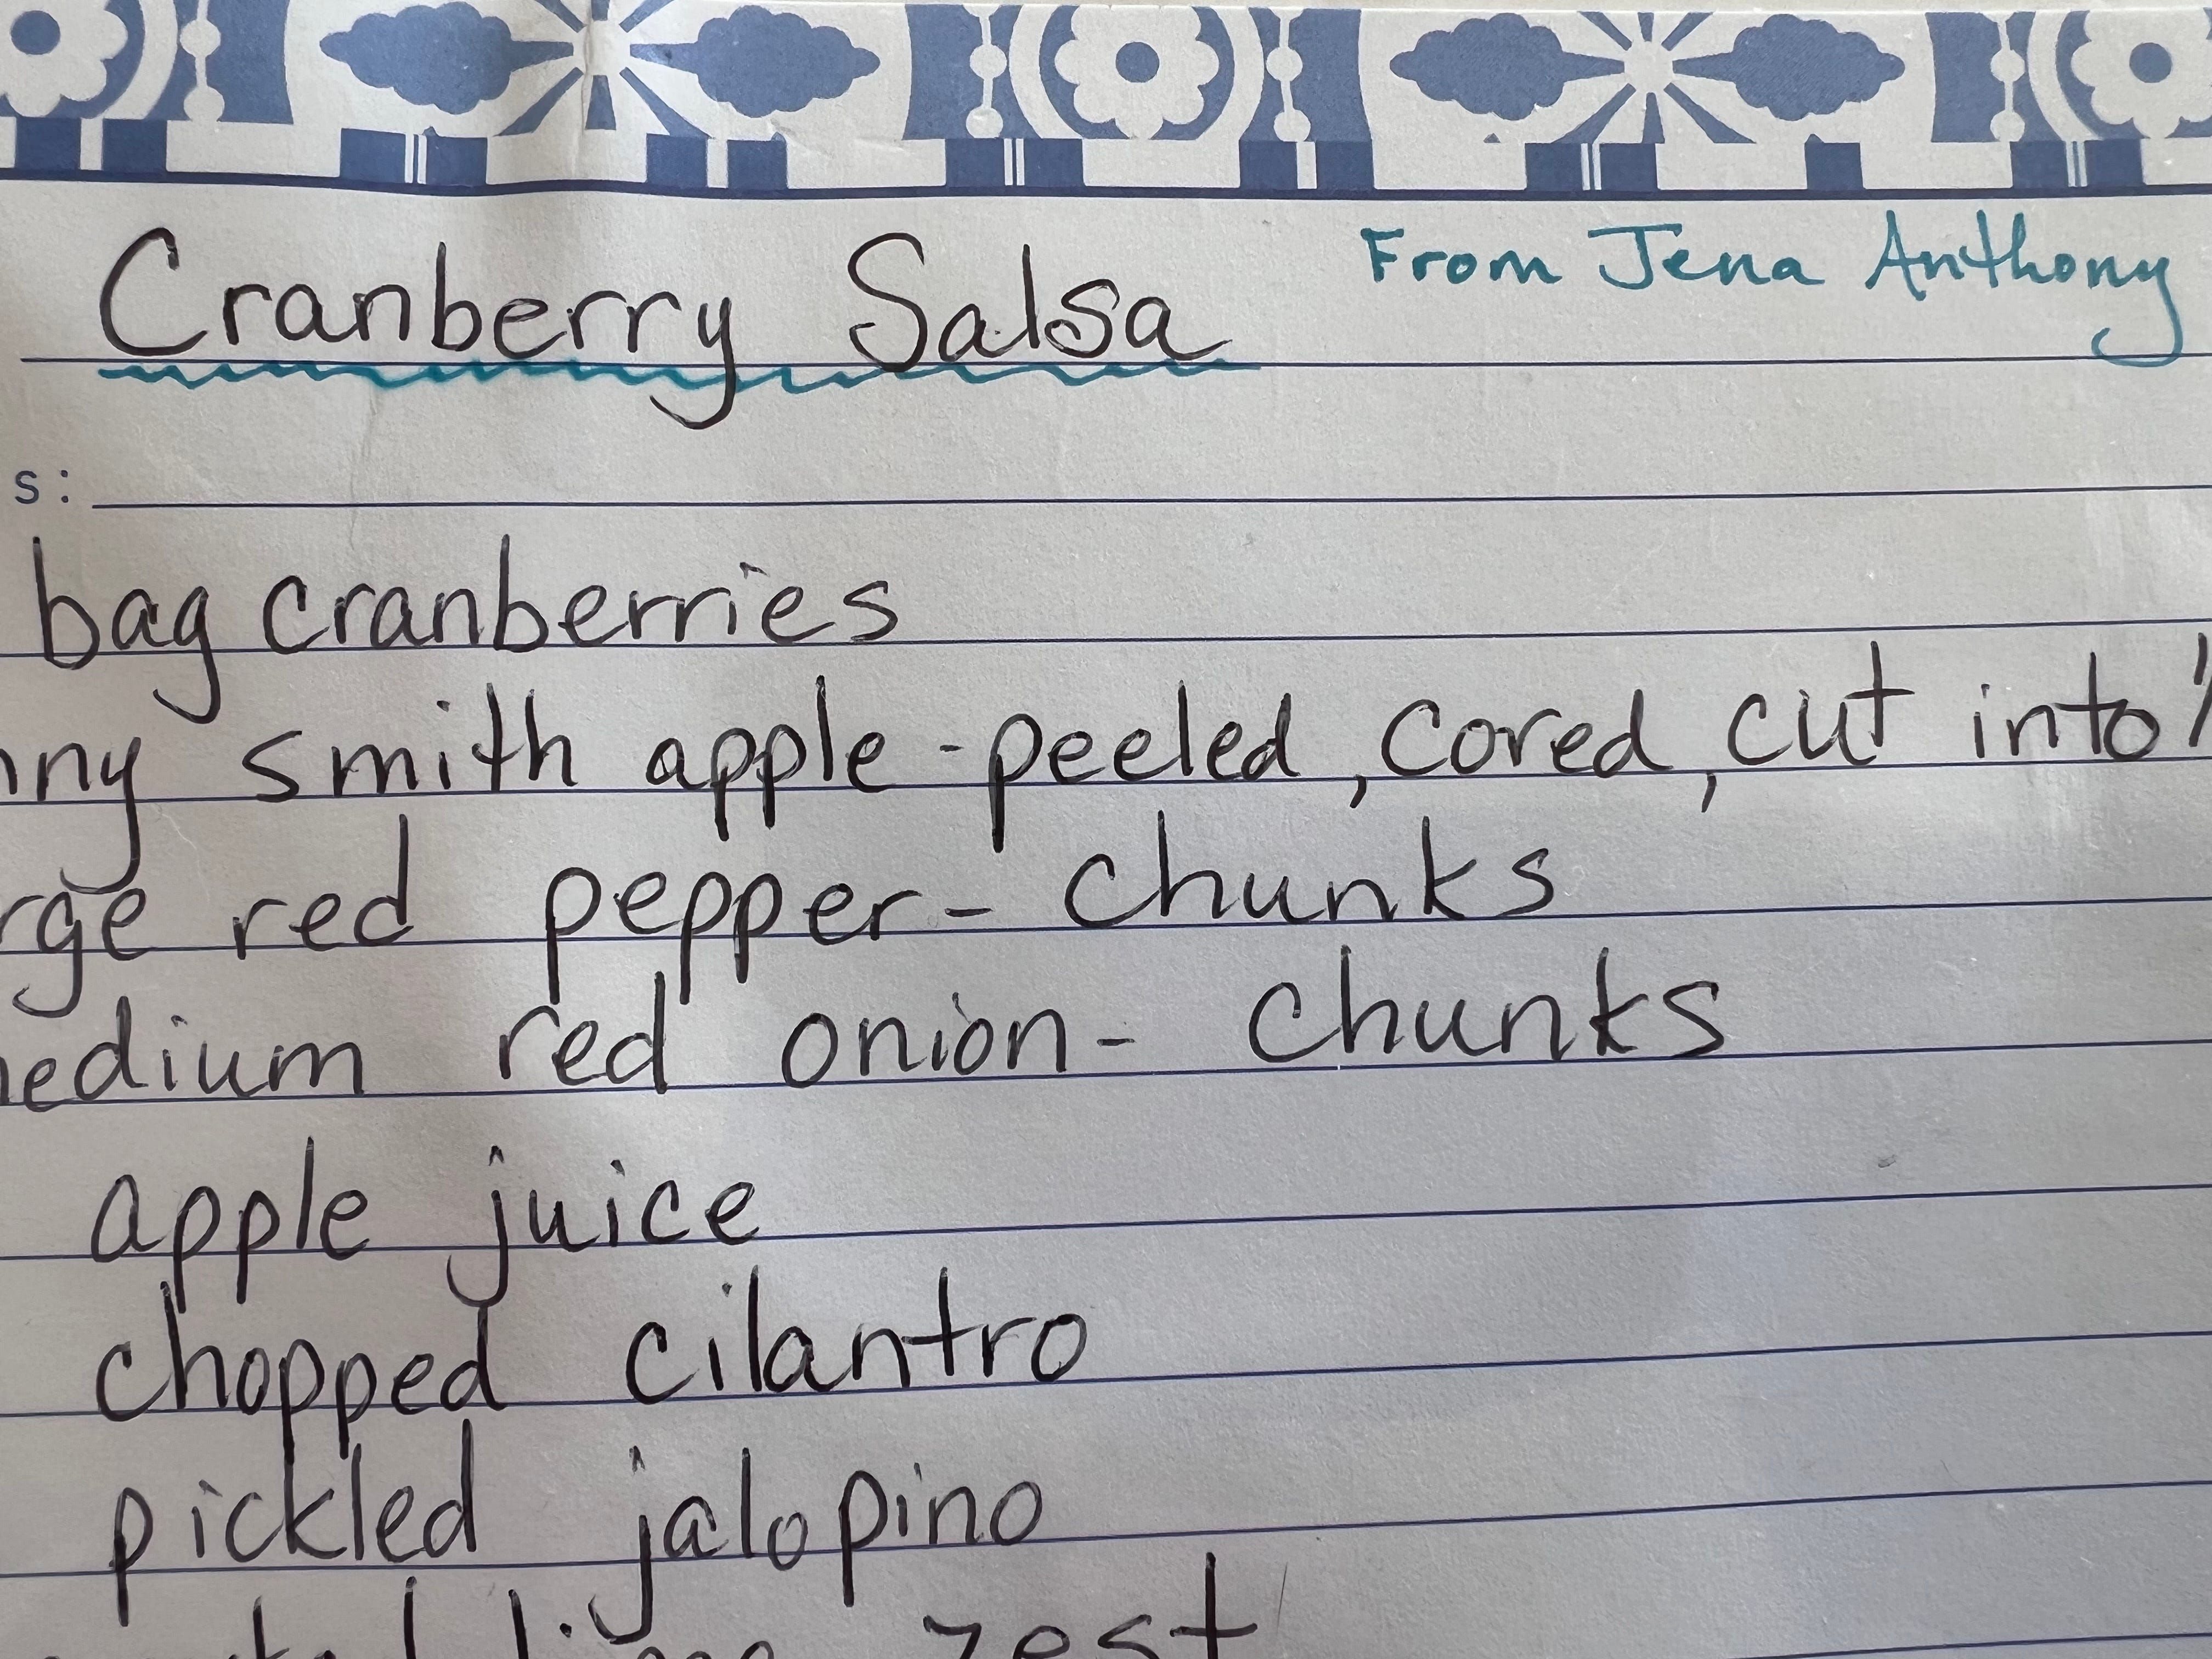 Cranberry Salsa From Jena Anthony
s:
bag cranberries
nny smith apple - peeled, cored, cut into
rge red pepper - chunks
edium red onion - chunks
apple juice
chopped cilantro
pickled jalopino
zest